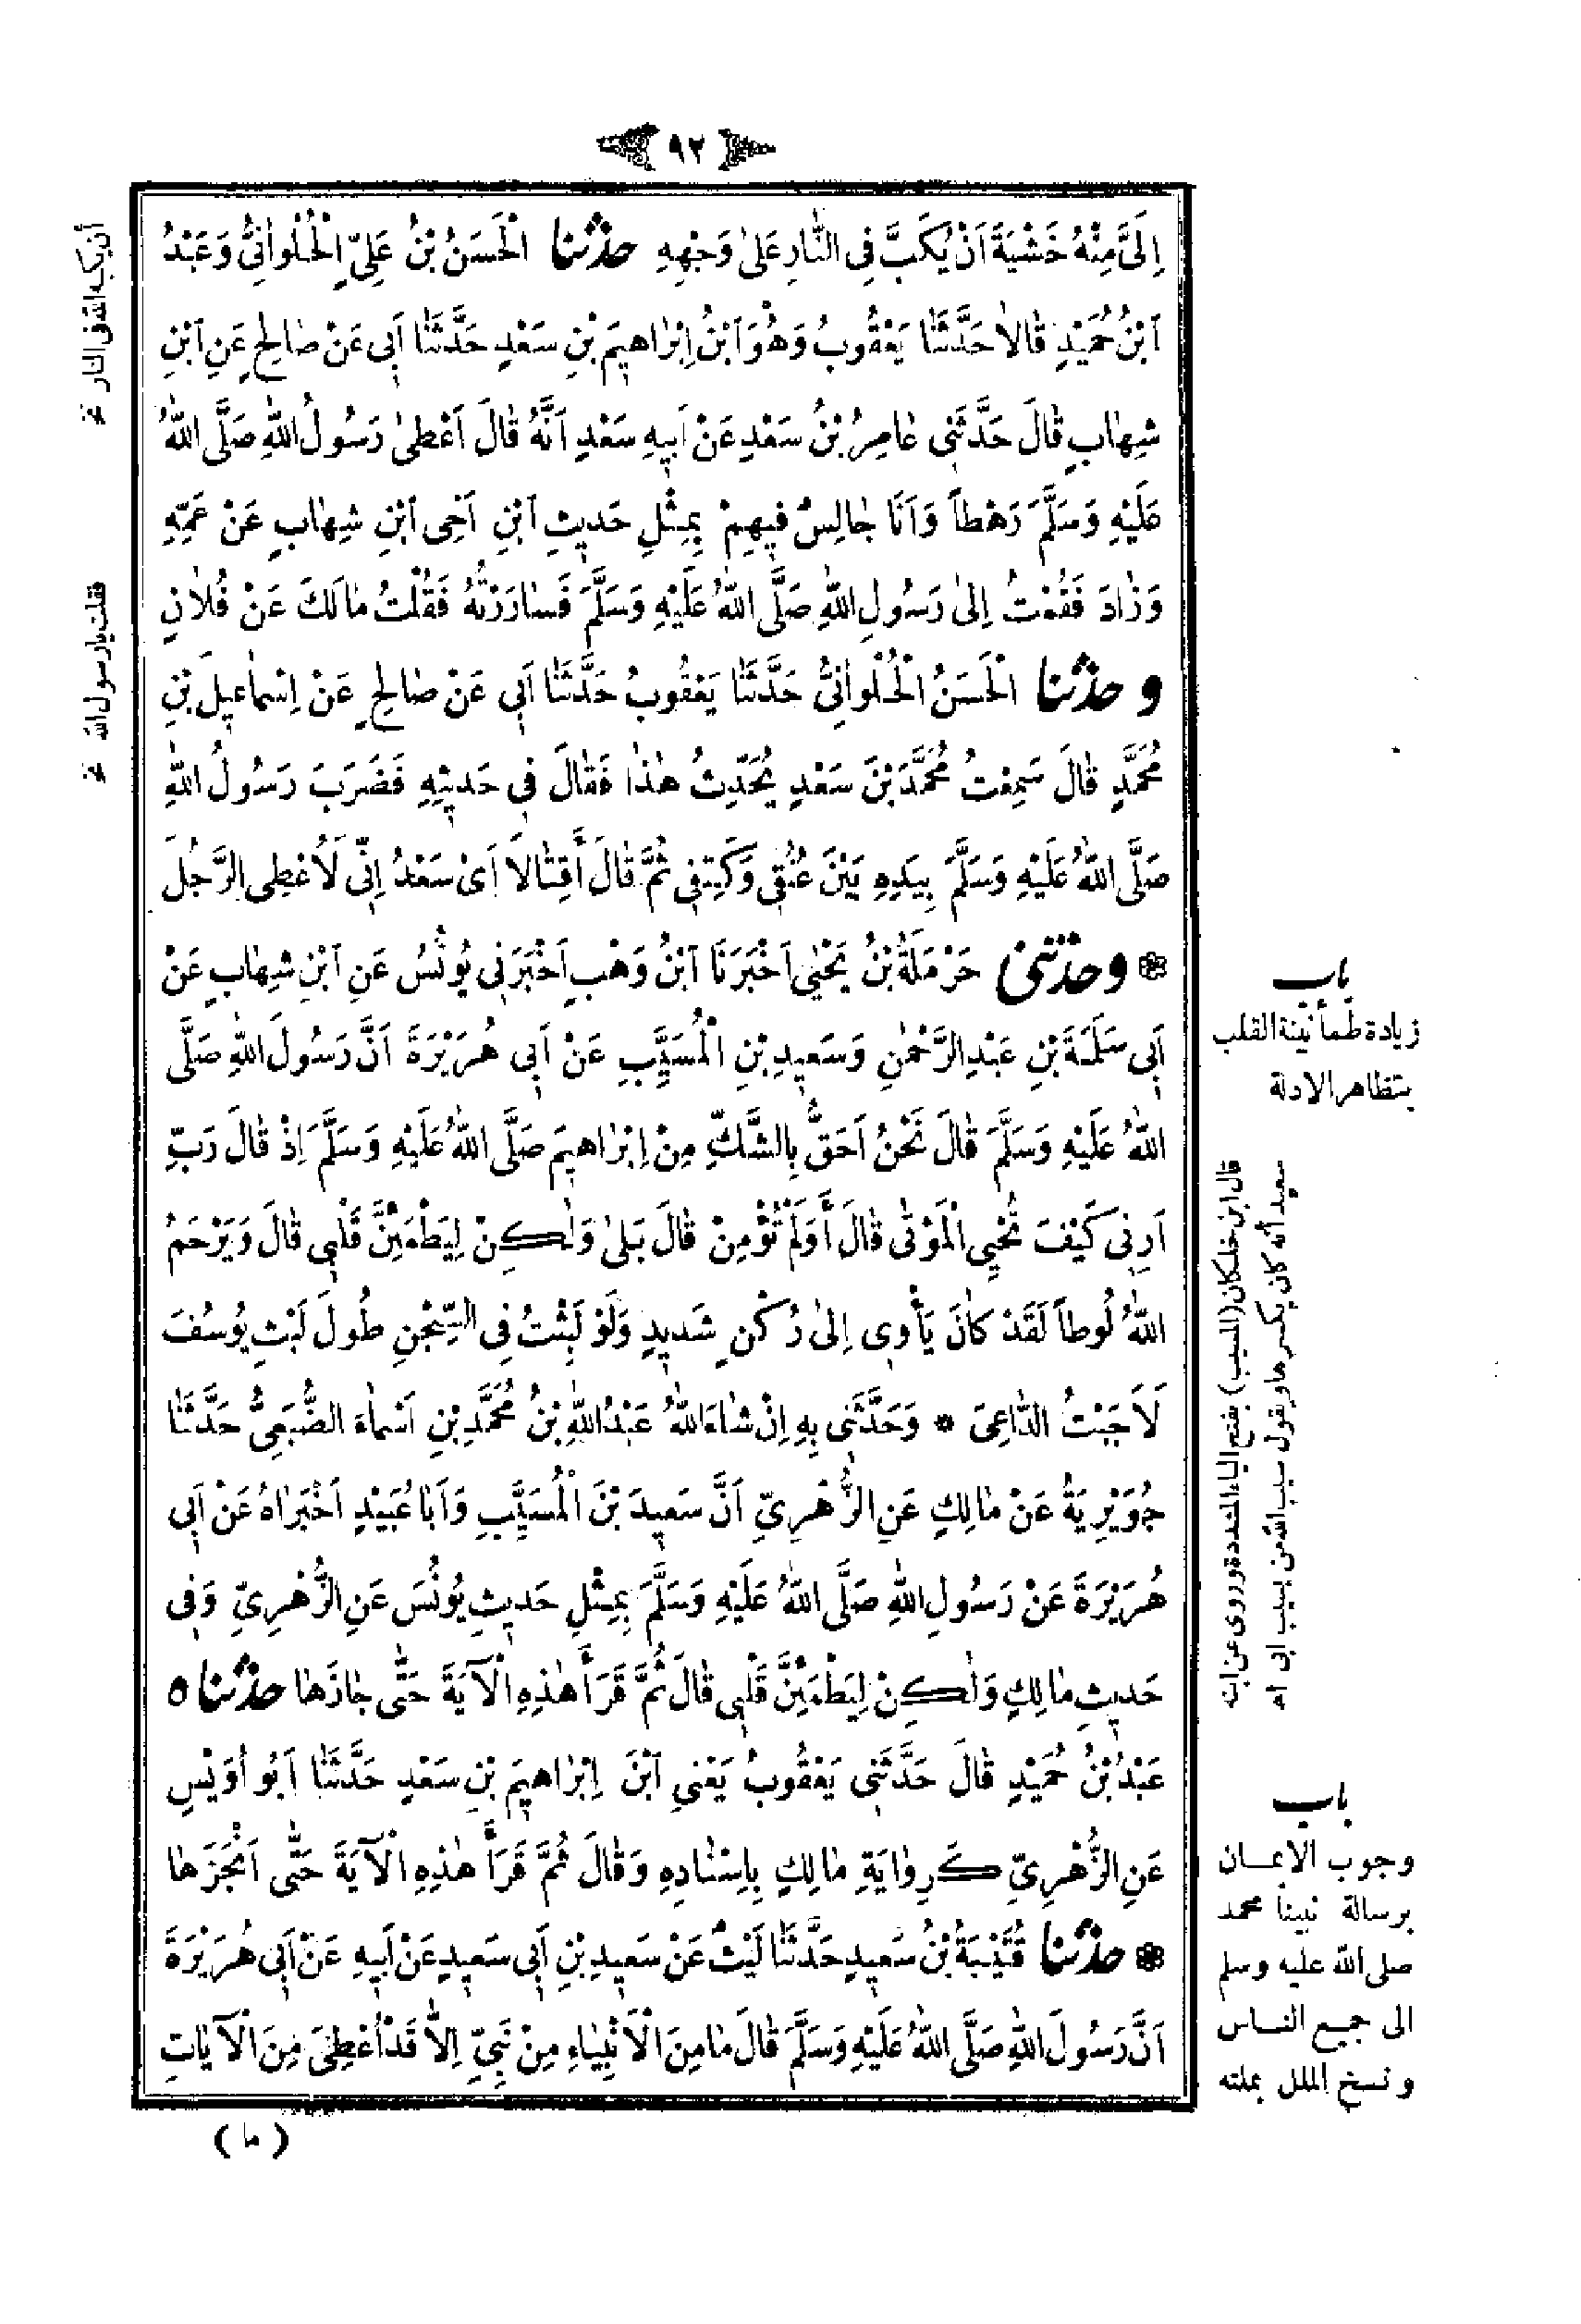 ٩٢
اِلَىَّ مِنْهُ خَشْيَةَ اَنْ يُكَبَّ فِى النَّارِ عَلىٰ وَجْهِهِ حدثنا الْحَسَنُ بْنُ عَلِىٍّ الْحُلْوانِىُّ وَعَبْدُ
ابْنُ حُمَيْدٍ قَالاَ حَدَّثَنَا يَعْقُوبُ وَهُوَ ابْنُ اِبْرَاهِيمَ بْنِ سَعْدٍ حَدَّثَنَا اَبِى عَنْ صَالِحٍ عَنِ ابْنِ
شِهَابٍ قَالَ حَدَّثَنِى عَامِرُ بْنُ سَعْدٍ عَنْ اَبِيهِ سَعْدٍ اَنَّهُ قَالَ اَعْطىٰ رَسُولُ اللهِ صَلَّى اللهُ
عَلَيْهِ وَسَلَّمَ رَهْطاً وَاَنَا جَالِسٌ فِيهِمْ بِمِثْلِ حَدِيثِ ابْنِ اَخِى ابْنِ شِهَابٍ عَنْ عَمِّهِ
وَزَادَ فَقُمْتُ اِلىٰ رَسُولِ اللهِ صَلَّى اللهُ عَلَيْهِ وَسَلَّمَ فَسَارَرْتُهُ فَقُلْتُ مَا لَكَ عَنْ فُلاَنٍ
و حدثنا الْحَسَنُ الْحُلْوانِىُّ حَدَّثَنَا يَعْقُوبُ حَدَّثَنَا اَبِى عَنْ صَالِحٍ عَنْ اِسْمَاعِيلَ بْنِ
مُحَمَّدٍ قَالَ سَمِعْتُ مُحَمَّدَ بْنَ سَعْدٍ يُحَدِّثُ هٰذَا فَقَالَ فِى حَدِيثِهِ فَضَرَبَ رَسُولُ اللهِ
صَلَّى اللهُ عَلَيْهِ وَسَلَّمَ بِيَدِهِ بَيْنَ عُنُقِى وَكَتِفِى ثُمَّ قَالَ أَقِتَالاً اَىْ سَعْدُ اِنِّى لَأُعْطِى الرَّجُلَ
❁ وحدثنى حَرْمَلَةُ بْنُ يَحْيىٰ اَخْبَرَنَا ابْنُ وَهْبٍ اَخْبَرَنِى يُونُسُ عَنِ ابْنِ شِهَابٍ عَنْ
اَبِى سَلَمَةَ بْنِ عَبْدِ الرَّحْمٰنِ وَسَعِيدِ بْنِ الْمُسَيَّبِ عَنْ اَبِى هُرَيْرَةَ اَنَّ رَسُولَ اللهِ صَلَّى
اللهُ عَلَيْهِ وَسَلَّمَ قَالَ نَحْنُ اَحَقُّ بِالشَّكِّ مِنْ اِبْرَاهِيمَ صَلَّى اللهُ عَلَيْهِ وَسَلَّمَ اِذْ قَالَ رَبِّ
اَرِنِى كَيْفَ تُحْيِى الْمَوْتىٰ قَالَ أَوَلَمْ تُؤْمِنْ قَالَ بَلىٰ وَلٰكِنْ لِيَطْمَئِنَّ قَلْبِى قَالَ وَيَرْحَمُ
اللهُ لُوطاً لَقَدْ كَانَ يَأْوِى اِلىٰ رُكْنٍ شَدِيدٍ وَلَوْ لَبِثْتُ فِى السِّجْنِ طُولَ لَبْثِ يُوسُفَ
لَاَجَبْتُ الدَّاعِىَ * وَحَدَّثَنِى بِهِ اِنْ شَاءَ اللهُ عَبْدُ اللهِ بْنُ مُحَمَّدِ بْنِ اَسْمَاءَ الضُّبَعِىُّ حَدَّثَنَا
جُوَيْرِيَةُ عَنْ مَالِكٍ عَنِ الزُّهْرِىِّ اَنَّ سَعِيدَ بْنَ الْمُسَيَّبِ وَاَبَا عُبَيْدٍ اَخْبَرَاهُ عَنْ اَبِى
هُرَيْرَةَ عَنْ رَسُولِ اللهِ صَلَّى اللهُ عَلَيْهِ وَسَلَّمَ بِمِثْلِ حَدِيثِ يُونُسَ عَنِ الزُّهْرِىِّ وَفِى
حَدِيثِ مَالِكٍ وَلٰكِنْ لِيَطْمَئِنَّ قَلْبِى قَالَ ثُمَّ قَرَأَ هٰذِهِ الْآيَةَ حَتّٰى جَازَهَا حدثناه
عَبْدُ بْنُ حُمَيْدٍ قَالَ حَدَّثَنِى يَعْقُوبُ يَعْنِى ابْنَ اِبْرَاهِيمَ بْنِ سَعْدٍ حَدَّثَنَا اَبُو اُوَيْسٍ
عَنِ الزُّهْرِىِّ كَرِوَايَةِ مَالِكٍ بِاِسْنَادِهِ وَقَالَ ثُمَّ قَرَأَ هٰذِهِ الْآيَةَ حَتّٰى اَنْجَزَهَا
❁ حدثنا قُتَيْبَةُ بْنُ سَعِيدٍ حَدَّثَنَا لَيْثٌ عَنْ سَعِيدِ بْنِ اَبِى سَعِيدٍ عَنْ اَبِيهِ عَنْ اَبِى هُرَيْرَةَ
اَنَّ رَسُولَ اللهِ صَلَّى اللهُ عَلَيْهِ وَسَلَّمَ قَالَ مَا مِنَ الْاَنْبِيَاءِ مِنْ نَبِىٍّ اِلاَّ قَدْ اُعْطِىَ مِنَ الْآيَاتِ
( ما )
باب
زيادة طمأنينة القلب
بتظاهر الادلة
قال ابن خلكان (المسيب) بفتح الياء المشددة وروى عن ابنه
سعيد أنه كان يكسرها ويقول سيب الله من يسيب ابى اه
باب
وجوب الايمان
برسالة نبينا محمد
صلى الله عليه وسلم
الى جميع الناس
ونسخ الملل بملته
أن يكبه الله فى النار نخ
فقلت يارسول الله نخ